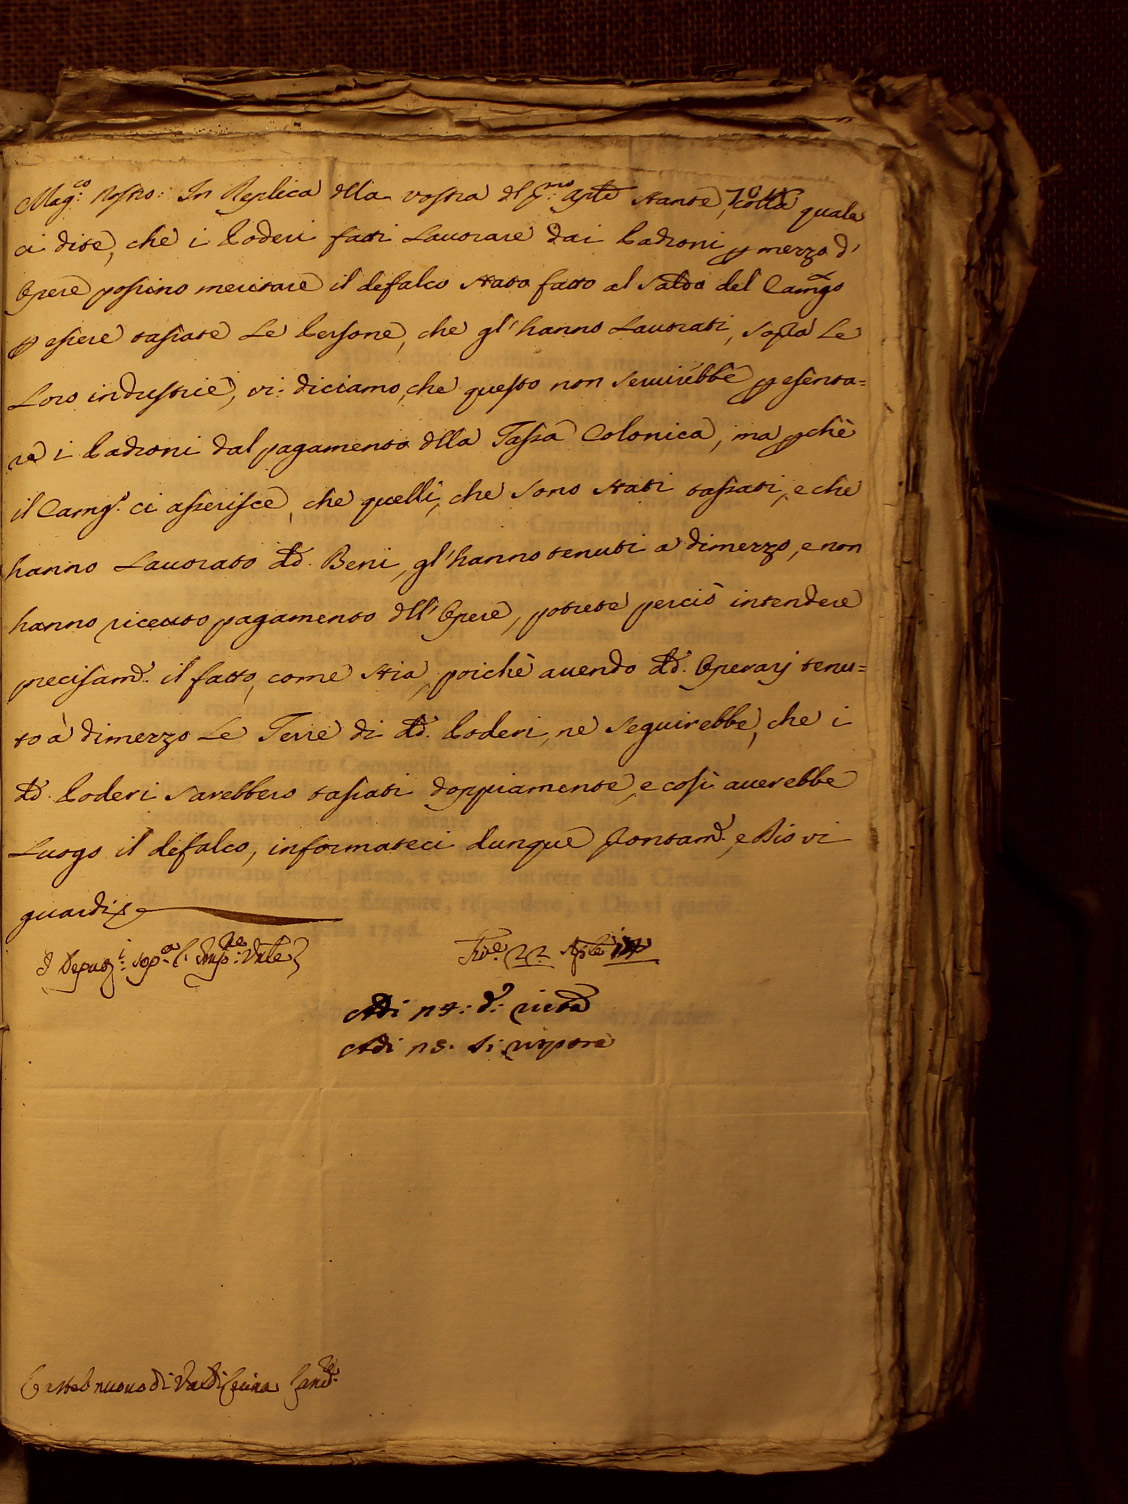 Mag.co Nostro: In Replica dlla vostra dl p.mo Aprle stante, colla quale
ci dite, che i Poderi fatti Lavorare dai Padroni p mezzo d'
Opere possino meritare il defalco stato fatto al saldo del Camgo
p essere tassate Le Persone, che gl'hanno Lavorati, sopra Le
Loro industrie, vi diciamo, che questo non servirebbe p esenta=
re i Padroni dal pagamento dlla Tassa Colonica, ma pchè
il Camg.o ci asserisce, che quelli, che sono stati tassati, e che
hanno Lavorato dd. Beni, gl'hanno tenuti a dimezzo, e non
hanno ricevuto pagamento dll'Opere, potrete perciò intendere
precisam.e il fatto, come stia, poichè avendo dd. Operarj tenu=
to à dimezzo Le Terre di dd. Poderi, ne seguirebbe, che i
dd. Poderi sarebbero tassati doppiamente, e così averebbe
Luogo il defalco, informateci dunque prontam.e, e Dio vi
guardi
I Deputi: sop.a l'
Adi 24: d.o: ricta
Adi 28: Si rispose
Castel nuovo di Val di Cecina Canc.re